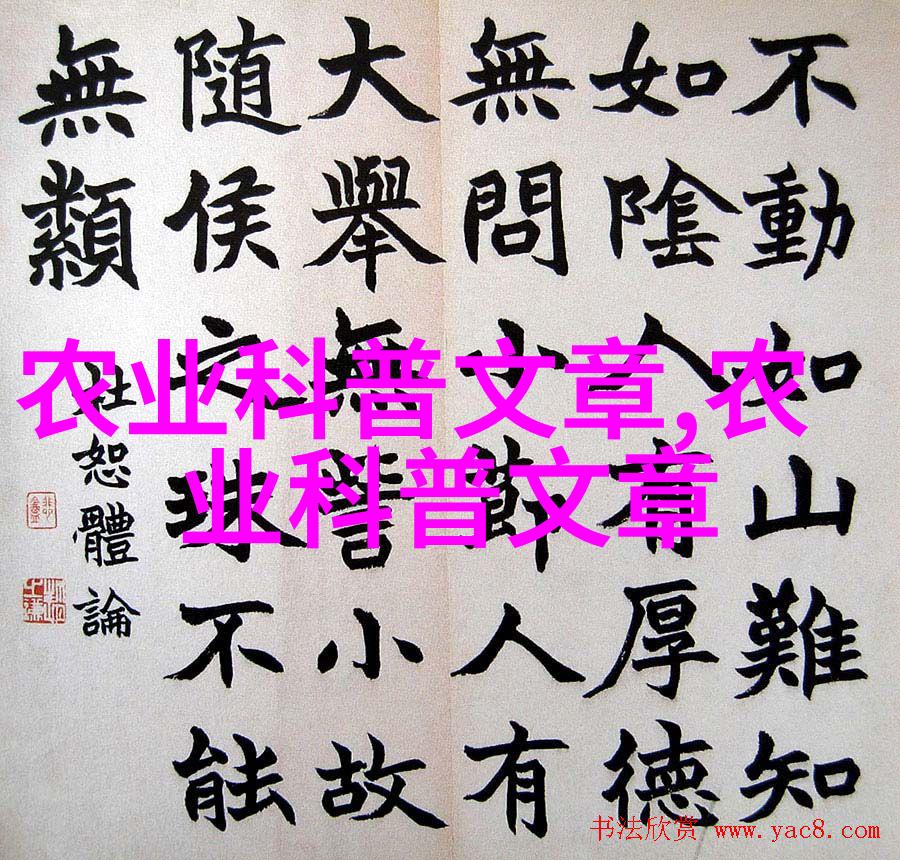 不動如山難知
如陰人有厚德
無問小節人有
大舉無訾小故
隨侯之珠不能
無纇
杜恕體論
农业科普文章,农
业科普文章
书法欣赏 www.yac8.com